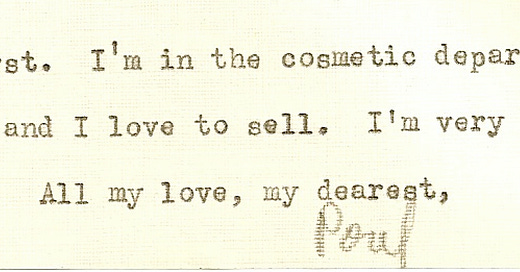 rst. I'm in the cosmetic depar
and I love to sell. I'm very
All my love, my dearest,